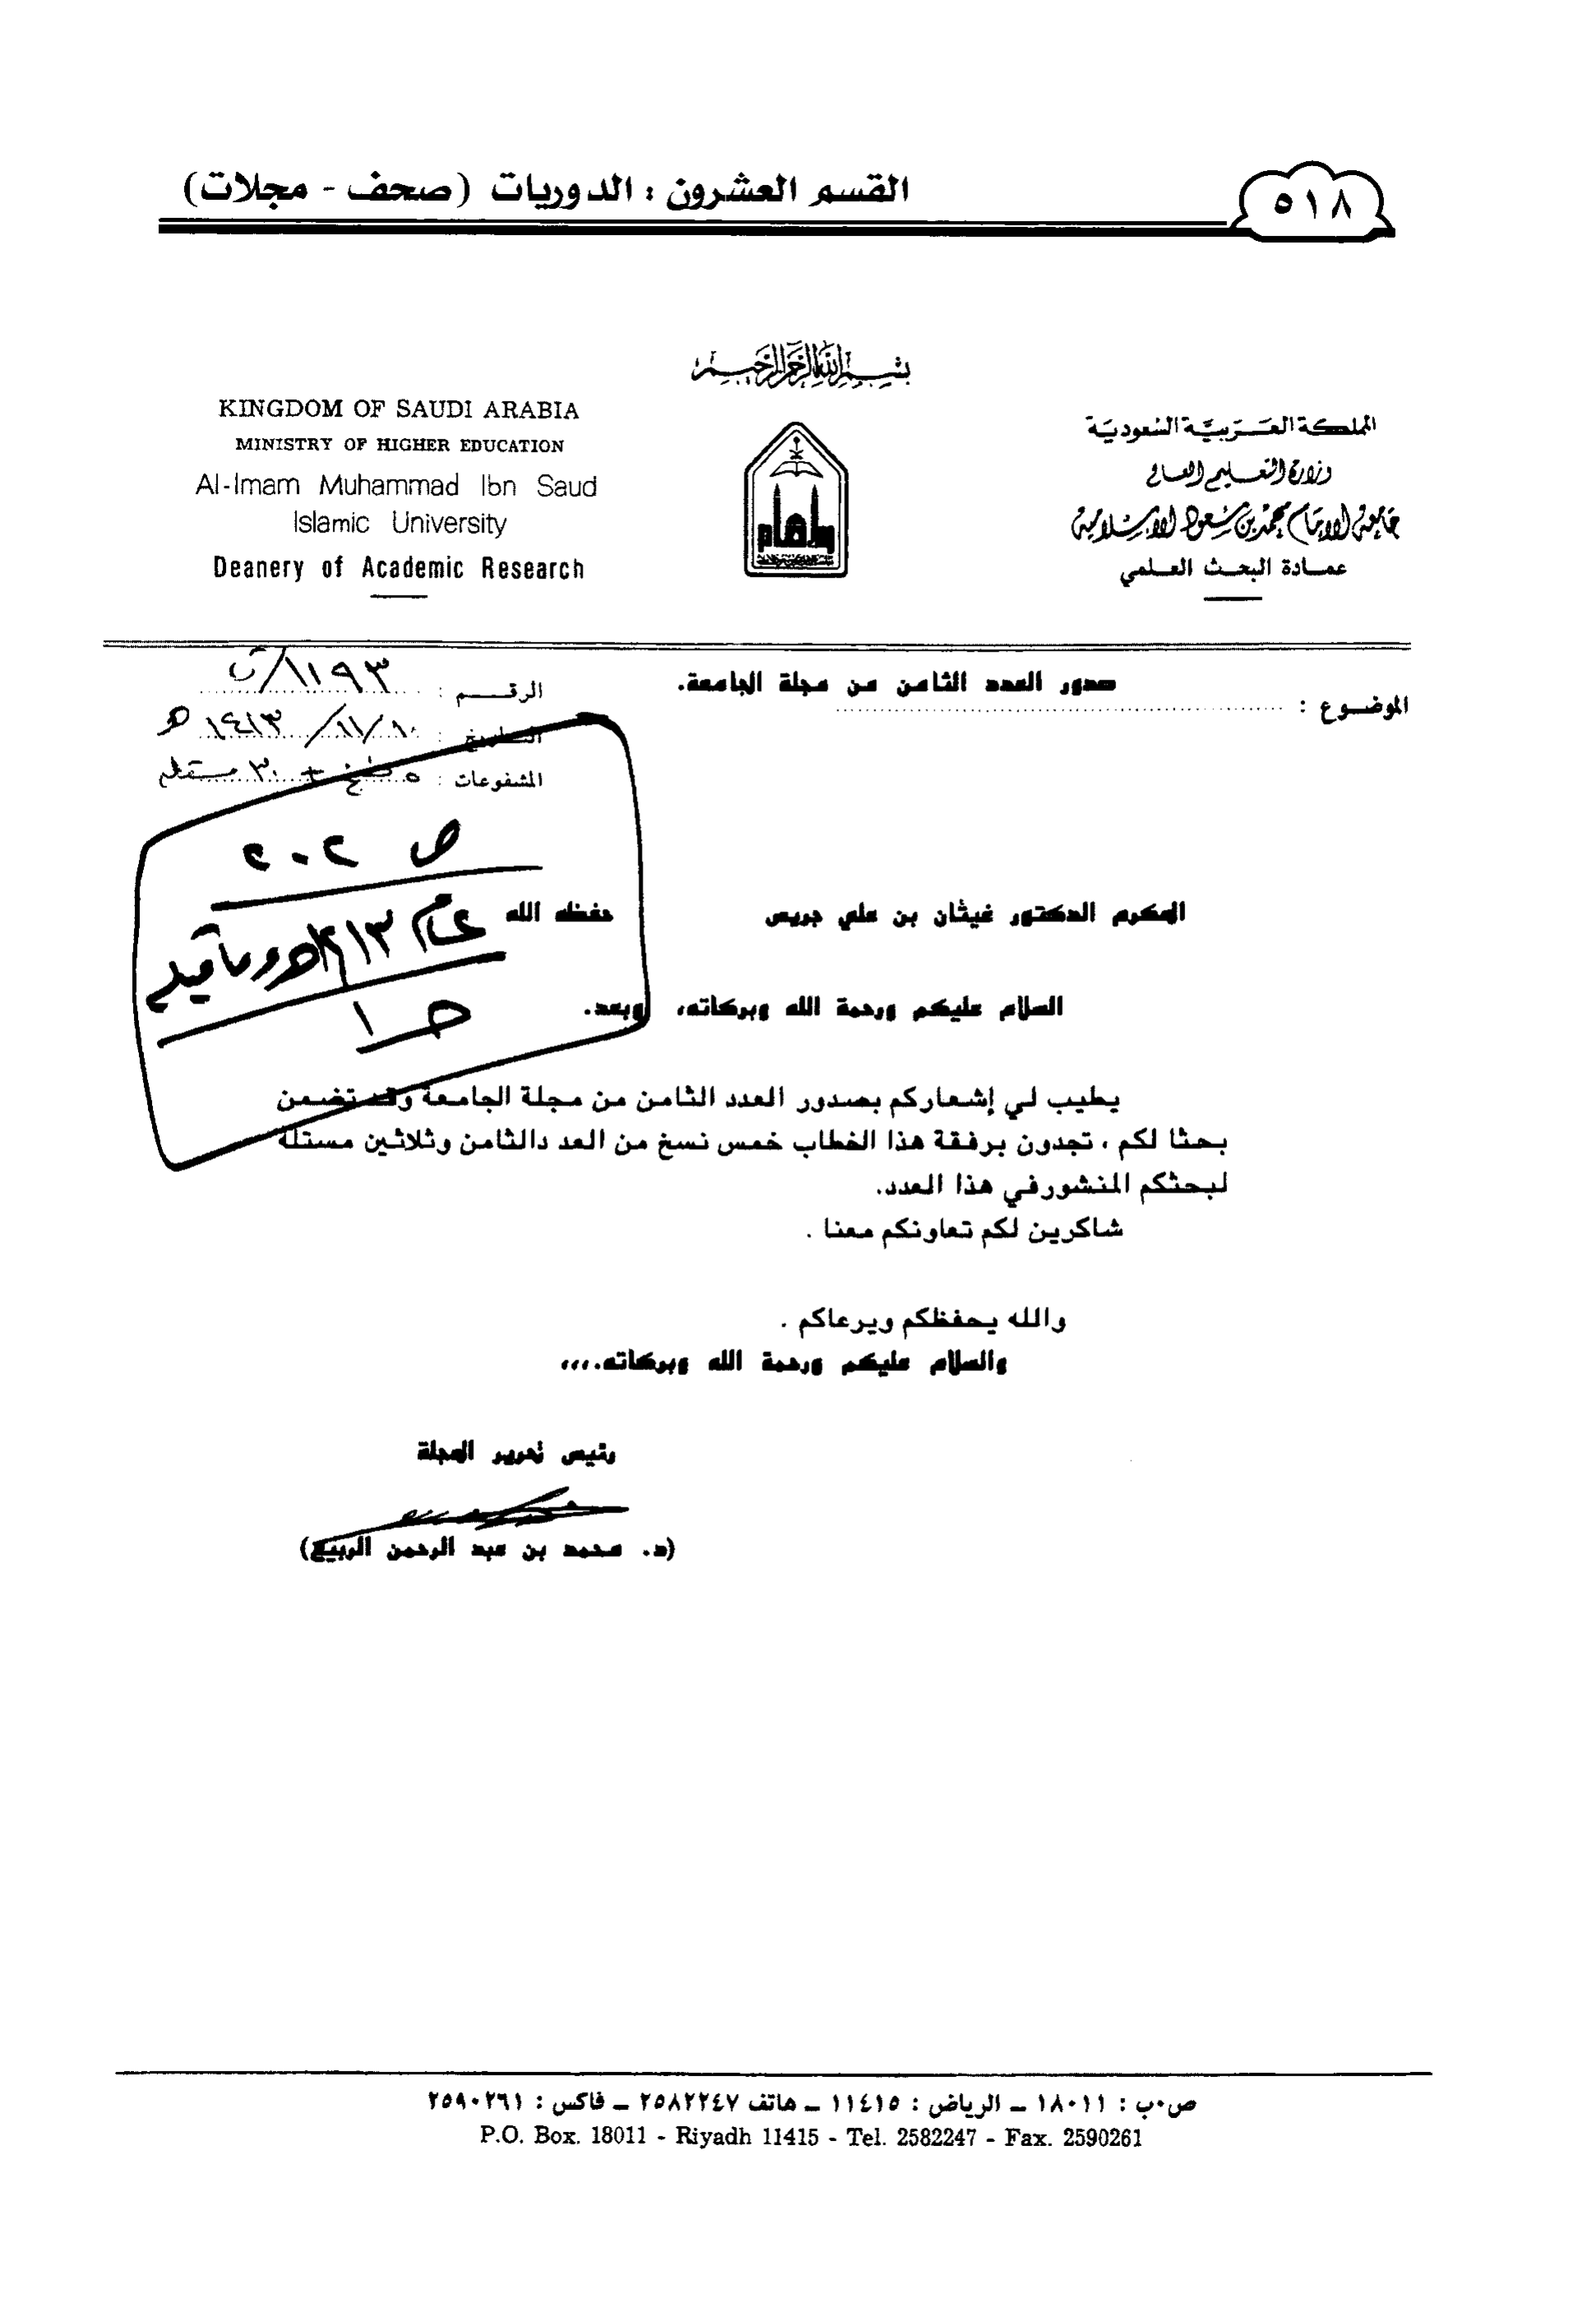 ٥١٨
القسم العشرون : الدوريات (صحف - مجلات)
بسم الله الرحمن الرحيم
KINGDOM OF SAUDI ARABIA
MINISTRY OF HIGHER EDUCATION
Al-Imam Muhammad Ibn Saud
Islamic University
Deanery of Academic Research
المملكة العربية السعودية
وزارة التعليم العالي
جامعة الإمام محمد بن سعود الإسلامية
عمادة البحث العلمي
الموضوع : صدور العدد الثامن من مجلة الجامعة.
الرقم : ١١٩٣/ت
التاريخ : ١٠/١١/١٤١٣ه
المشفوعات : ٥ نسخ + ٣٠ مستله
ص ٢٠٢
عام ١٤١٣هـ وما قبله
ج١
المكرم الدكتور غيثان بن علي جريس حفظه الله
السلام عليكم ورحمة الله وبركاته، وبعد.
يطيب لي إشعاركم بصدور العدد الثامن من مجلة الجامعة وقد تضمن
بحثا لكم ، تجدون برفقة هذا الخطاب خمس نسخ من العد دالثامن وثلاثين مستلة
لبحثكم المنشورفي هذا العدد.
شاكرين لكم تعاونكم معنا .
والله يحفظكم ويرعاكم .
والسلام عليكم ورحمة الله وبركاته.،،،
رئيس تحرير المجلة
(د. محمد بن عبد الرحمن الربيع)
ص.ب : ١٨٠١١ – الرياض : ١١٤١٥ – هاتف ٢٥٨٢٢٤٧ – فاكس : ٢٥٩٠٢٦١
P.O. Box. 18011 - Riyadh 11415 - Tel. 2582247 - Fax. 2590261